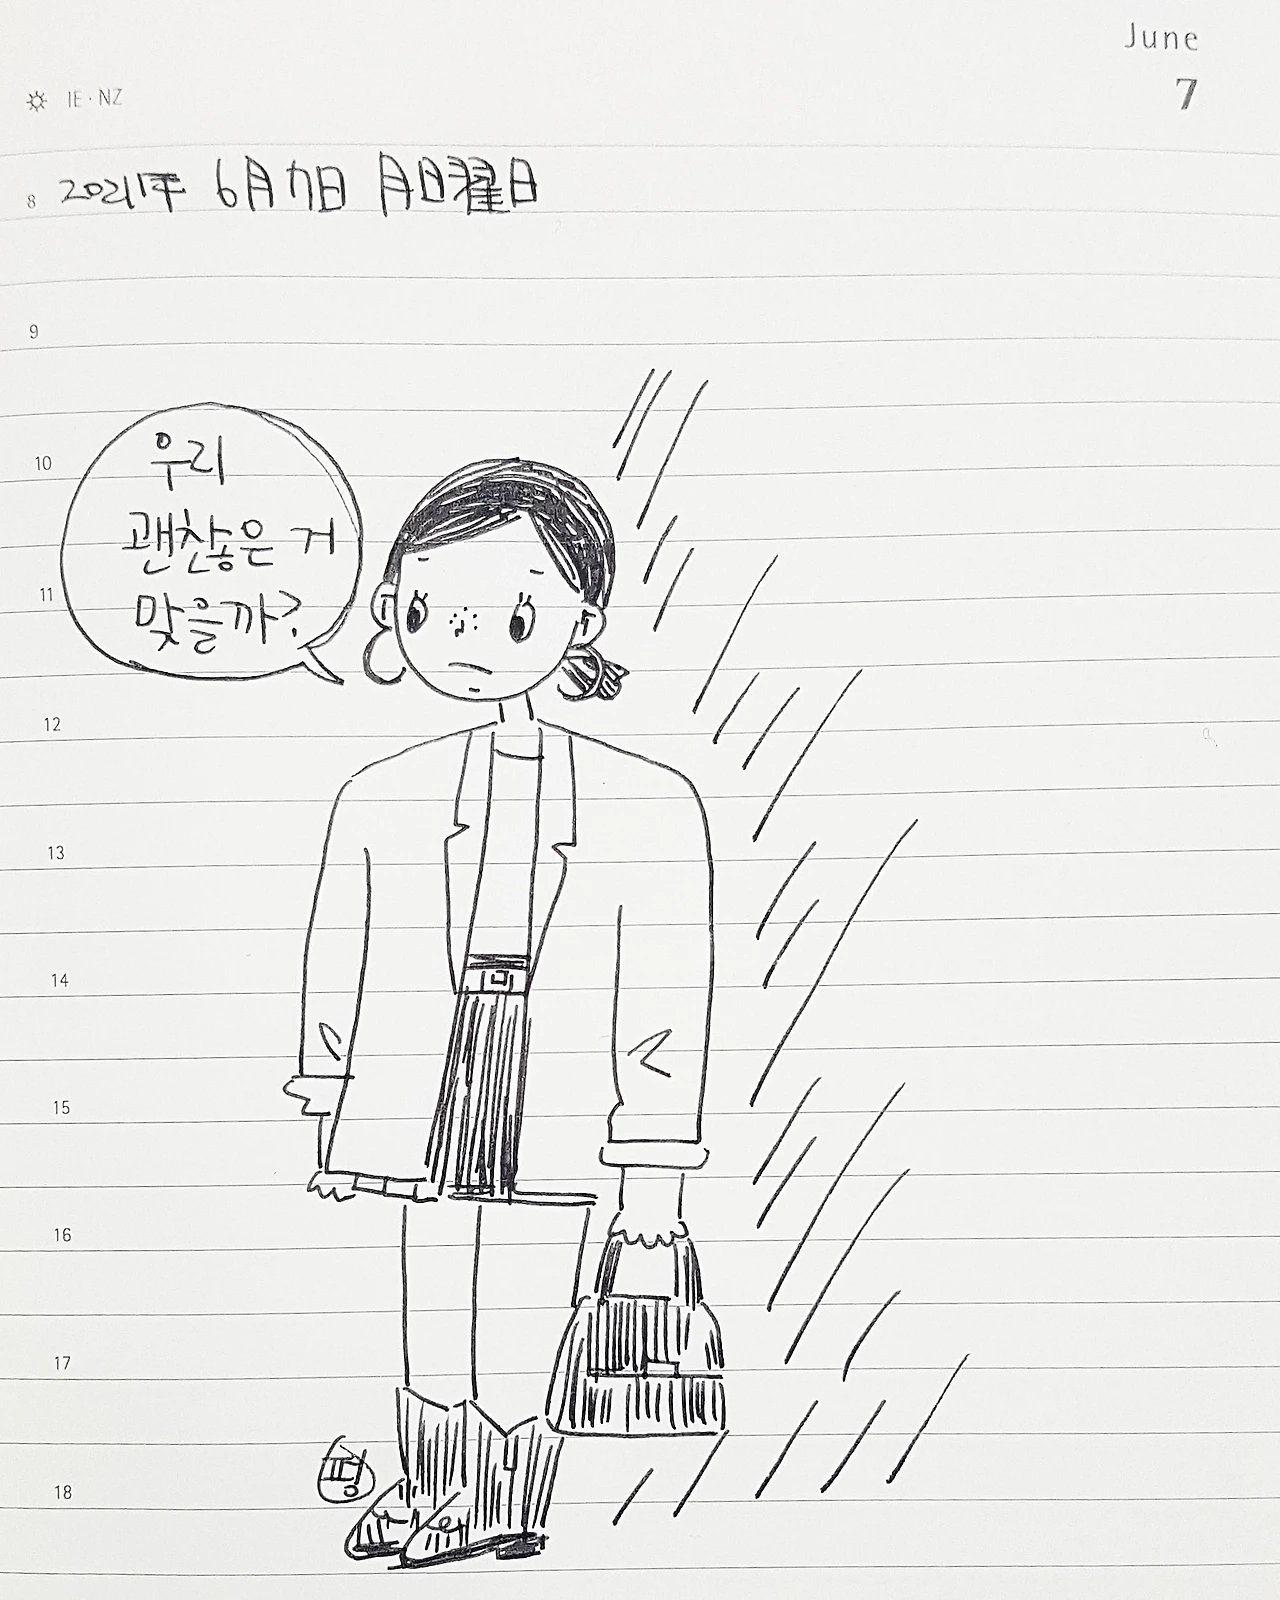 June
7
IE · NZ
8
2021年 6月 7日 月日曜日
9
우리
10
괜찮은 거
11
맞을까?
12
13
14
15
16
17
18